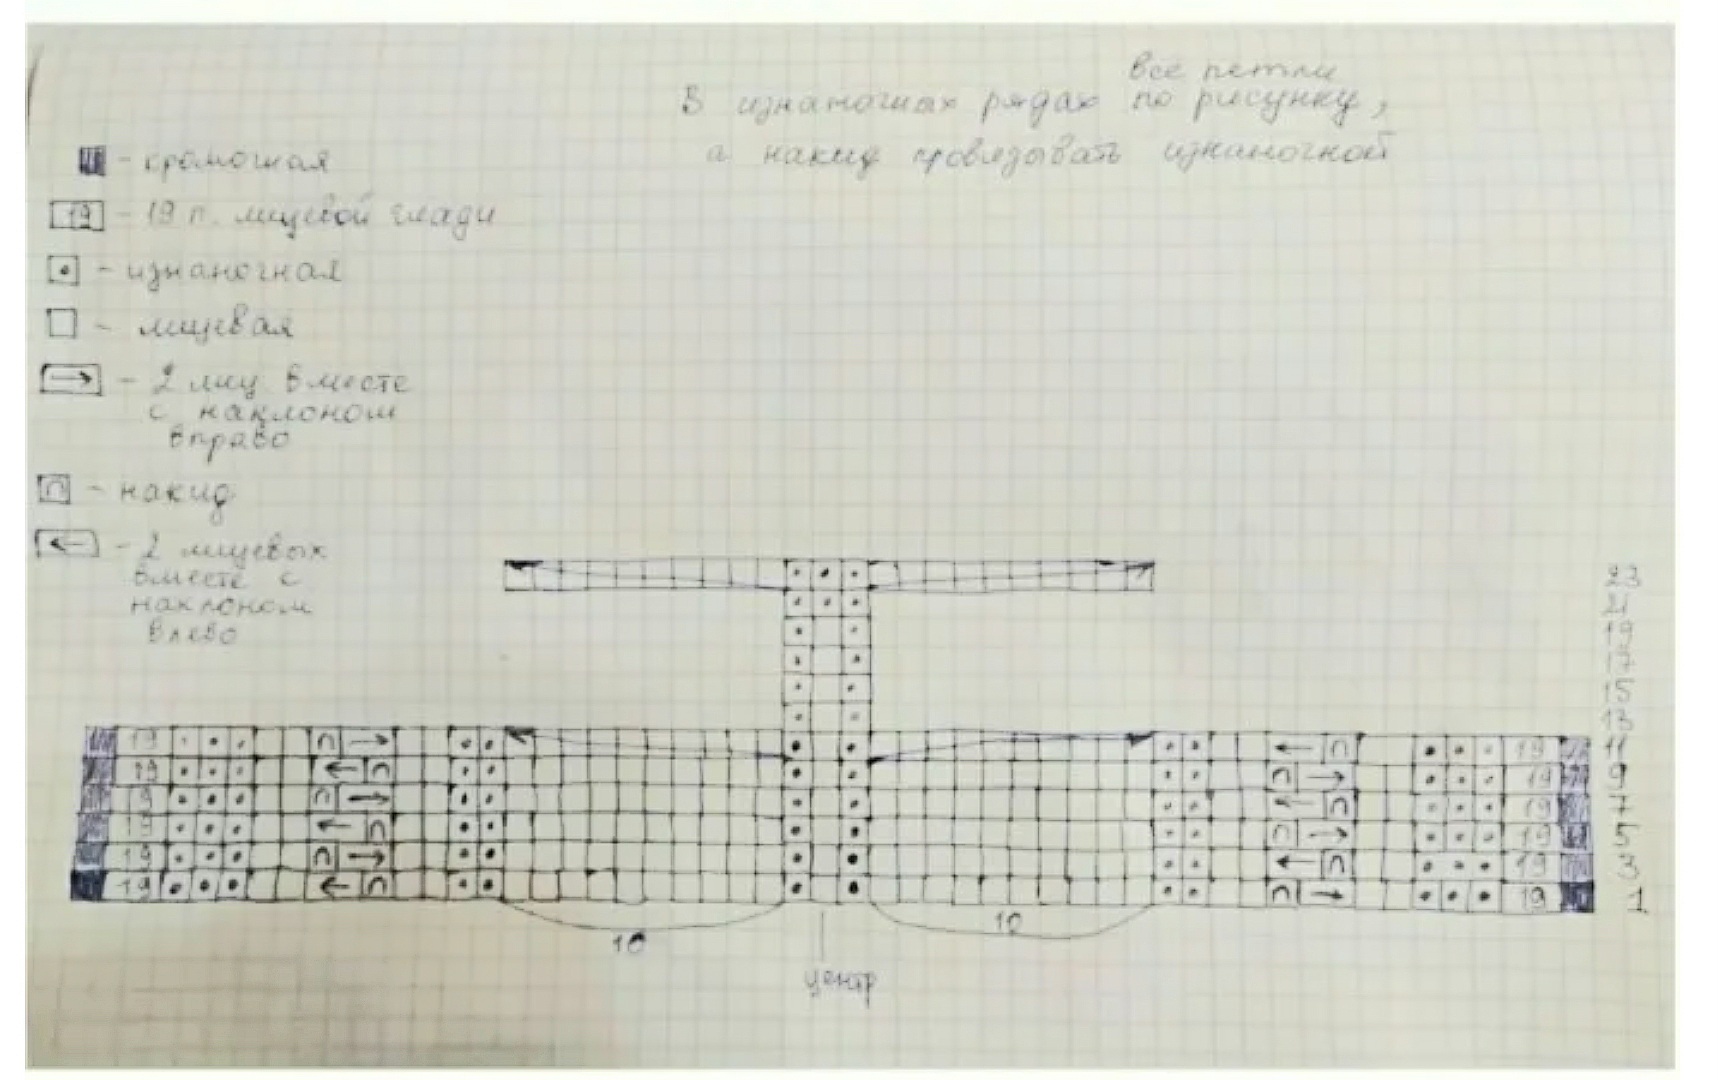 все петли
В изнаночных рядах по рисунку,
а накид провязывать изнаночной
- кромочная
19 - 19 п. лицевой глади
- изнаночная
- лицевая
→ - 2 лиц. вместе
с наклоном
вправо
∩ - накид
← - 2 лицевых
вместе с
наклоном
влево
23
21
19
17
15
13
19 ∩ → ← ∩ 19 11
19 ← ∩ ∩ → 19 9
19 ∩ → ← ∩ 19 7
19 ← ∩ ∩ → 19 5
19 ∩ → ← ∩ 19 3
19 ← ∩ ∩ → 19 1
10 10
центр